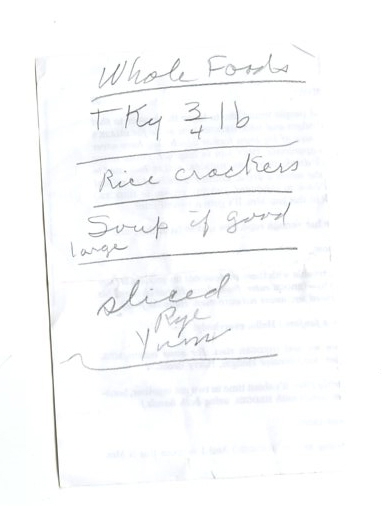 Whole Foods
TKy 3/4 lb
Rice crackers
Soup if good
large
sliced
Rye
Yumm